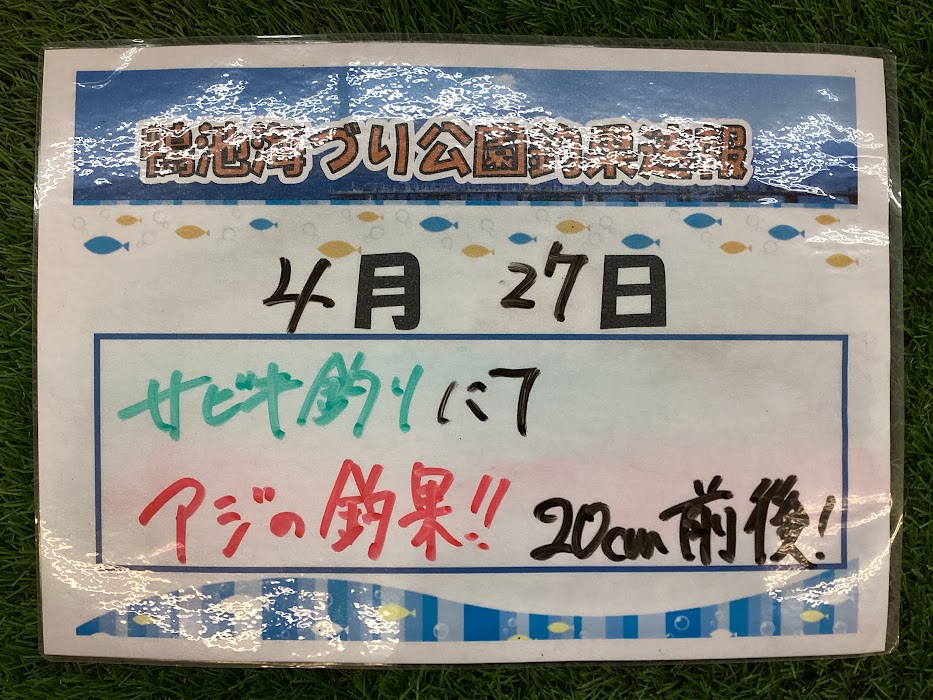 鴨池海づり公園釣果速報
4月 27日
サビキ釣りにて
アジの釣果!! 20cm前後!